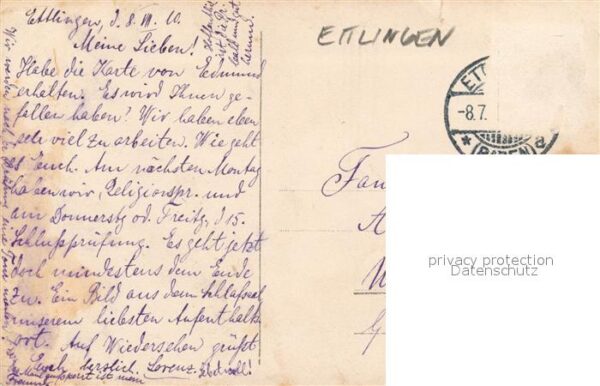 Ettlingen, d. 8. VII. 10.
Meine Lieben!
Habe die Karte von Edmund
erhalten. Es wird Ihnen ge-
fallen haben? Wir haben eben
sehr viel zu arbeiten. Wie geht
es Euch. Am nächsten Montag
haben wir Religionspr. und
am Donnerstg od. Freitg, d 15.
Schlußprüfung. Es geht jetzt
doch mindestens dem Ende
zu. Ein Bild aus dem Schlafsaal
unserem liebsten Aufenthalts-
ort. Auf Wiedersehen grüßt
Euch herzlich Lorenz.
ist mein
Hoffentlich
ist die Pr.
bald und gut
herum.
Wir werden nach der Prüfung eine
ETTLINGEN
ETT
-8.7.
(BADEN) a
Fam
privacy protection
Datenschutz